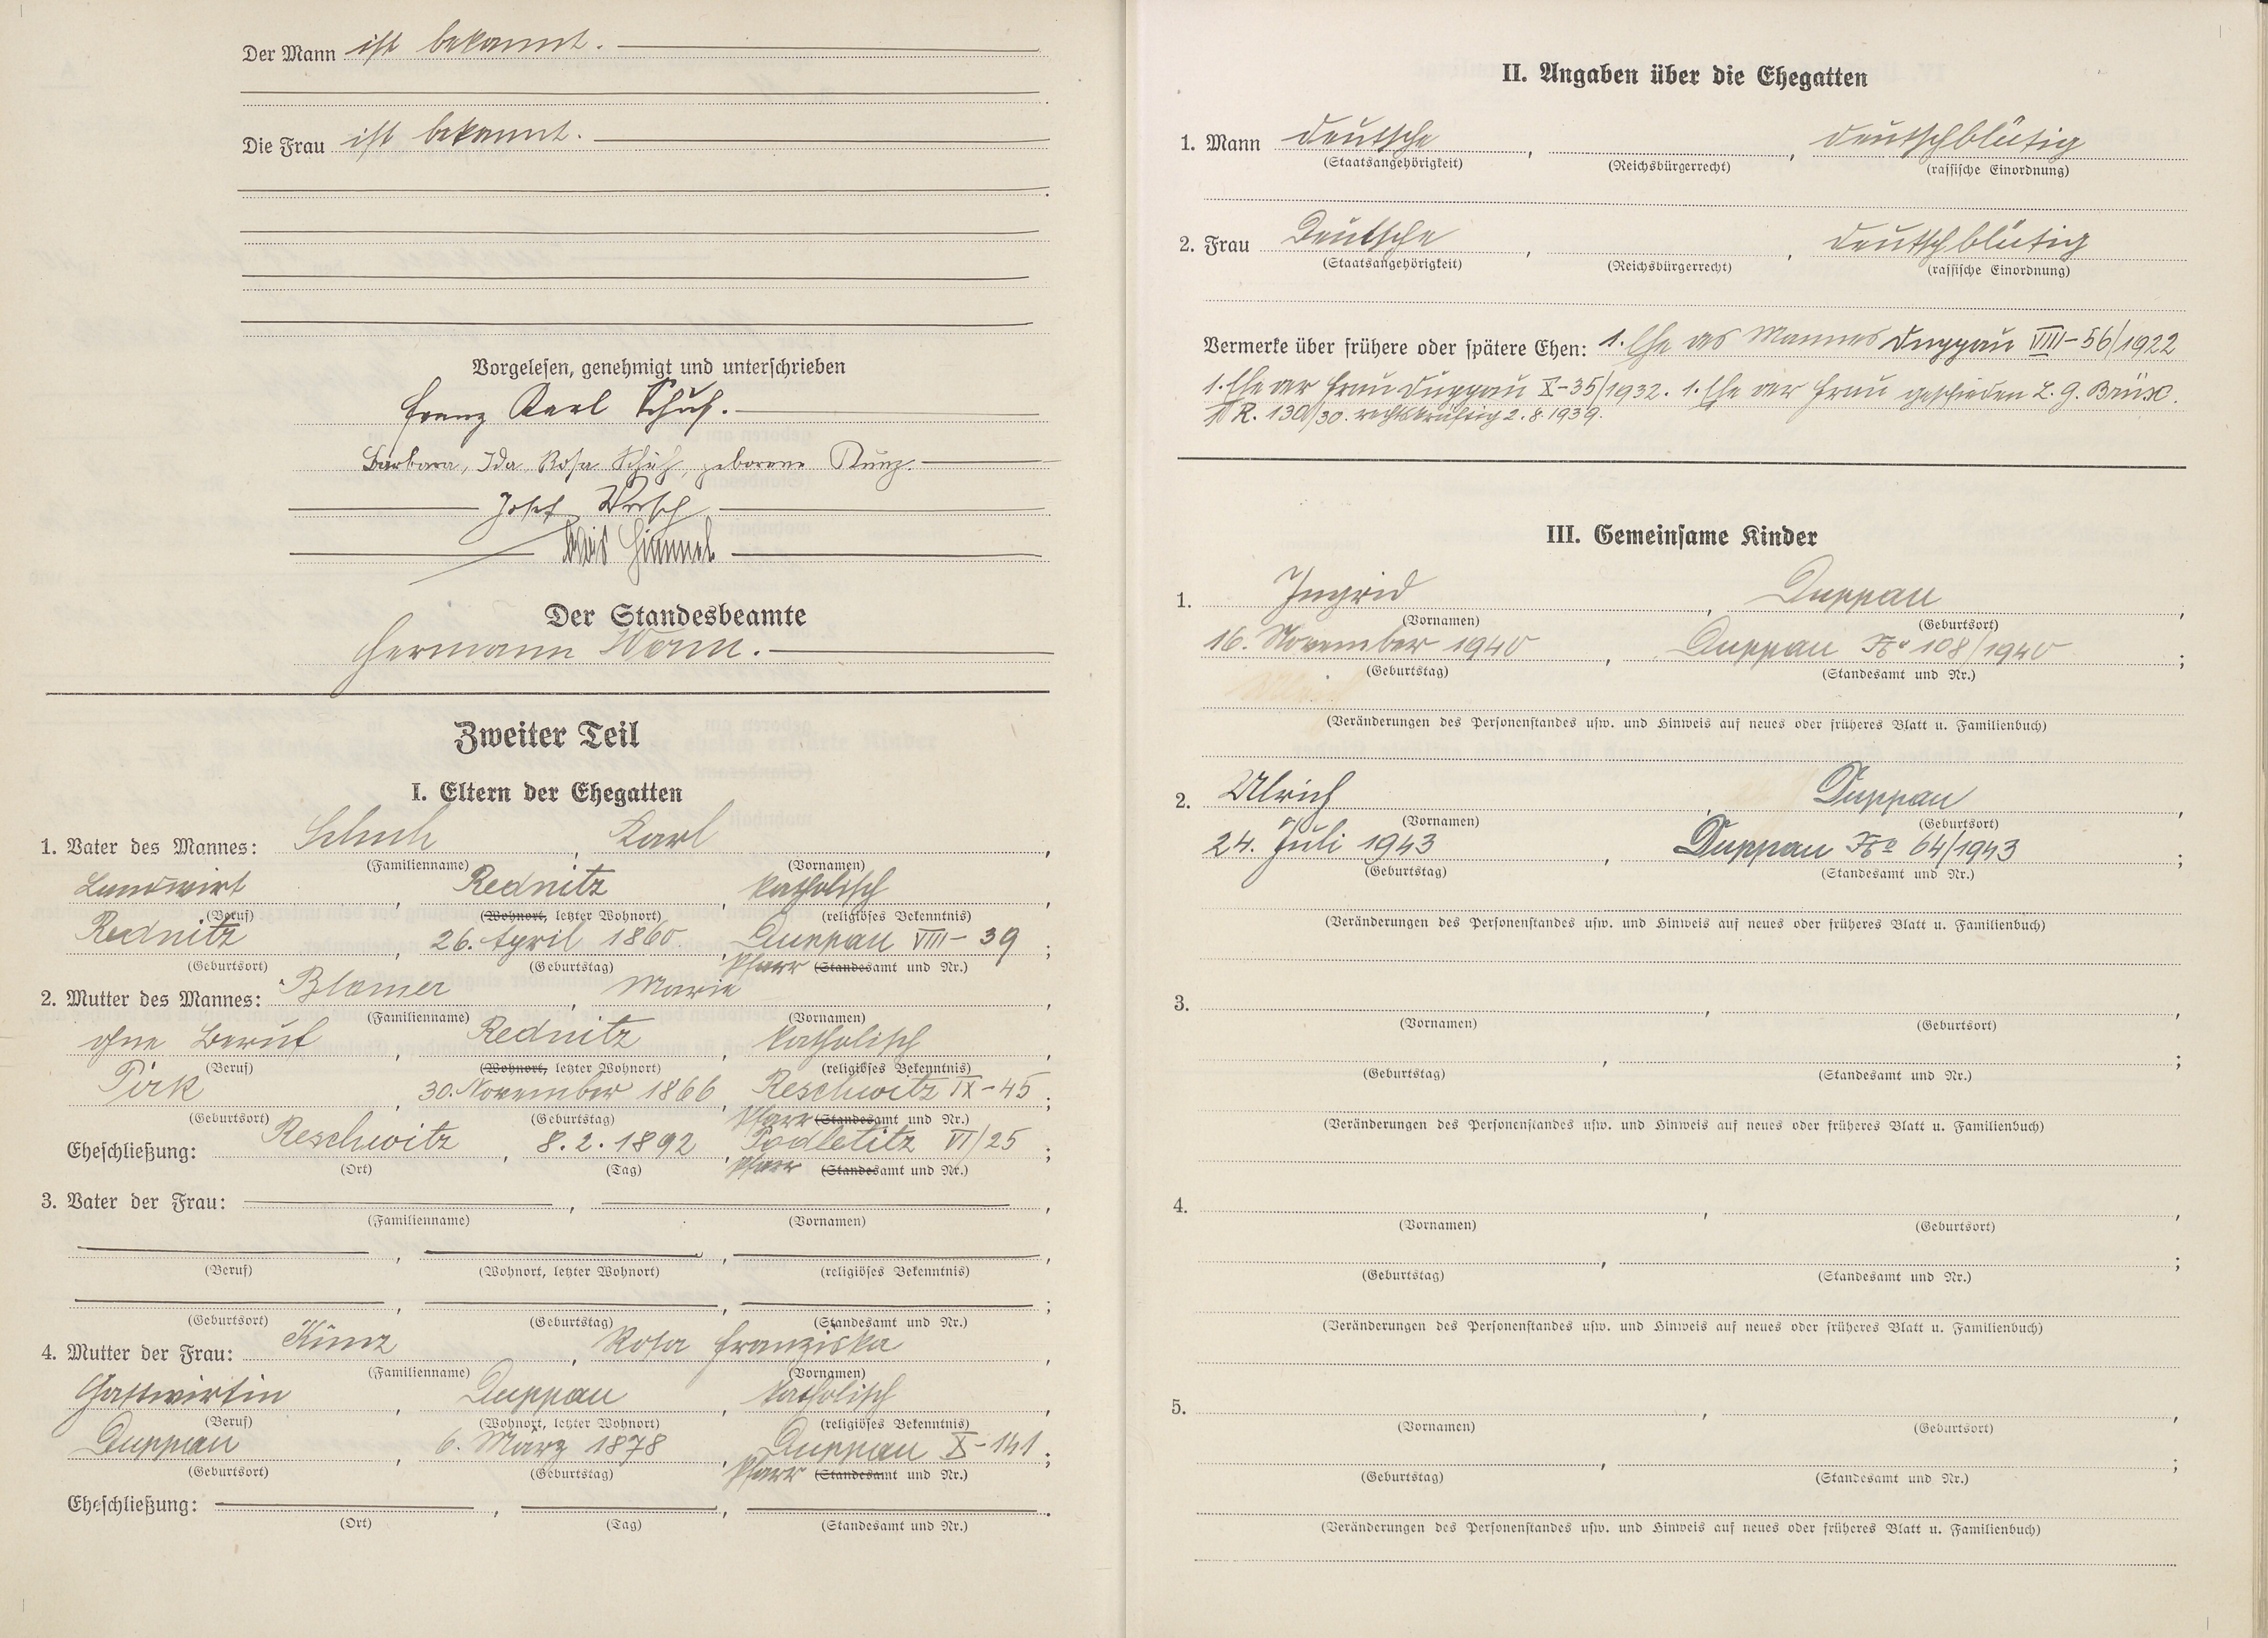 Der Mann ist bekannt.
Die Frau ist bekannt.
Vorgelesen, genehmigt und unterschrieben
Franz Karl Schuh.
Barbara, Ida Rosa Schuh, geborene Kunz.
Josef
Alois Himmel
Der Standesbeamte
Hermann Worm.
Zweiter Teil
I. Eltern der Ehegatten
1. Vater des Mannes: Schuh, Karl,
(Familienname) (Vornamen)
Landwirt, Rednitz, katholisch,
(Beruf) (Wohnort, letzter Wohnort) (religiöses Bekenntnis)
Rednitz, 26. April 1860, Duppau VIII-39;
(Geburtsort) (Geburtstag) Pfarr (Standesamt und Nr.)
2. Mutter des Mannes: Blamer, Marie,
(Familienname) (Vornamen)
ohne Beruf, Rednitz, katholisch,
(Beruf) (Wohnort, letzter Wohnort) (religiöses Bekenntnis)
Pirk, 30. November 1866, Reschwitz IX-45;
(Geburtsort) (Geburtstag) Pfarr (Standesamt und Nr.)
Eheschließung: Reschwitz, 8.2.1892, Podletitz VI/25;
(Ort) (Tag) Pfarr (Standesamt und Nr.)
3. Vater der Frau: , ,
(Familienname) (Vornamen)
, , ,
(Beruf) (Wohnort, letzter Wohnort) (religiöses Bekenntnis)
, , ;
(Geburtsort) (Geburtstag) (Standesamt und Nr.)
4. Mutter der Frau: Kunz, Rosa Franziska,
(Familienname) (Vornamen)
Gastwirtin, Duppau, katholisch,
(Beruf) (Wohnort, letzter Wohnort) (religiöses Bekenntnis)
Duppau, 6. März 1878, Duppau X-141;
(Geburtsort) (Geburtstag) Pfarr (Standesamt und Nr.)
Eheschließung: , , .
(Ort) (Tag) (Standesamt und Nr.)
II. Angaben über die Ehegatten
1. Mann deutsche, , deutschblütig
(Staatsangehörigkeit) (Reichsbürgerrecht) (rassische Einordnung)
2. Frau Deutsche, , deutschblütig
(Staatsangehörigkeit) (Reichsbürgerrecht) (rassische Einordnung)
Vermerke über frühere oder spätere Ehen: 1. Ehe des Mannes Duppau VIII-56/1922
1. Ehe der Frau Duppau X-35/1932. 1. Ehe der Frau geschieden L. G. Brüx.
R. 130/30. rechtskräftig 2.8.1939.
III. Gemeinsame Kinder
1. Ingrid, Duppau,
(Vornamen) (Geburtsort)
16. November 1940, Duppau No 108/1940;
(Geburtstag) (Standesamt und Nr.)
(Veränderungen des Personenstandes usw. und Hinweis auf neues oder früheres Blatt u. Familienbuch)
2. Ulrich, Duppau,
(Vornamen) (Geburtsort)
24. Juli 1943, Duppau No 64/1943;
(Geburtstag) (Standesamt und Nr.)
(Veränderungen des Personenstandes usw. und Hinweis auf neues oder früheres Blatt u. Familienbuch)
3. , ,
(Vornamen) (Geburtsort)
, ;
(Geburtstag) (Standesamt und Nr.)
(Veränderungen des Personenstandes usw. und Hinweis auf neues oder früheres Blatt u. Familienbuch)
4. , ,
(Vornamen) (Geburtsort)
, ;
(Geburtstag) (Standesamt und Nr.)
(Veränderungen des Personenstandes usw. und Hinweis auf neues oder früheres Blatt u. Familienbuch)
5. , ,
(Vornamen) (Geburtsort)
, ;
(Geburtstag) (Standesamt und Nr.)
(Veränderungen des Personenstandes usw. und Hinweis auf neues oder früheres Blatt u. Familienbuch)